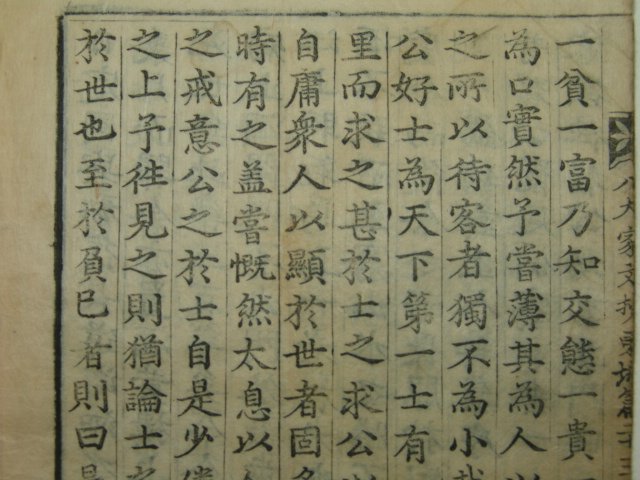 八大家文抄東坡篇
一貧一富乃知交態一貴
為口實然予嘗薄其為人以
之所以待客者獨不為小哉
公好士為天下第一士有
里而求之甚於士之求公以
自庸衆人以顯於世者固多
時有之盖嘗慨然太息以
之戒意公之於士自是少倦
之上予徃見之則猶論士之
於世也至於負巳者則曰是